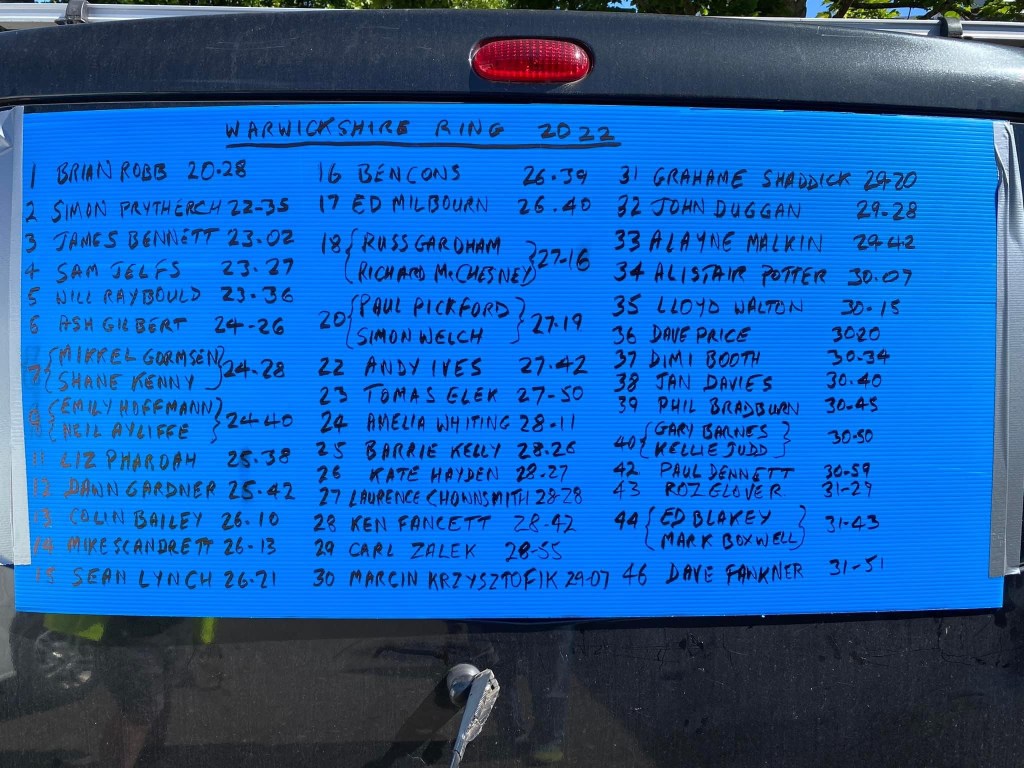 WARWICKSHIRE RING 2022
1 BRIAN ROBB 20.28
2 SIMON PRYTHERCH 22-35
3 JAMES BENNETT 23.02
4 SAM JELFS 23.27
5 WILL RAYBOULD 23.36
6 ASH GILBERT 24-26
7 { MIKKEL GORMSEN
SHANE KENNY } 24-28
9 { EMILY HOFFMANN
10 NEIL AYLIFFE } 24-40
11 LIZ PHAROAH 25.38
12 DANN GARDNER 25.42
13 COLIN BAILEY 26.10
14 MIKE SCANDRETT 26-13
15 SEAN LYNCH 26-21
16 BEN CONS 26.39
17 ED MILBOURN 26.40
18 { RUSS GARDHAM
RICHARD McCHESNEY } 27-16
20 { PAUL PICKFORD
SIMON WELCH } 27.19
22 ANDY IVES 27.42
23 TOMAS ELEK 27-50
24 AMELIA WHITING 28-11
25 BARRIE KELLY 28.26
26 KATE HAYDEN 28-27
27 LAURENCE CHOWNSMITH 28-28
28 KEN FANCETT 28-42
29 CARL ZALEK 28-55
30 MARCIN KRZYSZTOFIK 29-07
31 GRAHAME SHADDICK 29-20
32 JOHN DUGGAN 29-28
33 ALAYNE MALKIN 29-42
34 ALISTAIR POTTER 30.07
35 LLOYD WALTON 30-15
36 DAVE PRICE 3020
37 DIMI BOOTH 30-34
38 JAN DAVIES 30.40
39 PHIL BRADBURN 30-45
40 { GARY BARNES
KELLIE JUDD } 30-50
42 PAUL DENNETT 30-59
43 ROZ GLOVER 31-29
44 { ED BLAKEY
MARK BOXWELL } 31-43
46 DAVE FANKNER 31-51